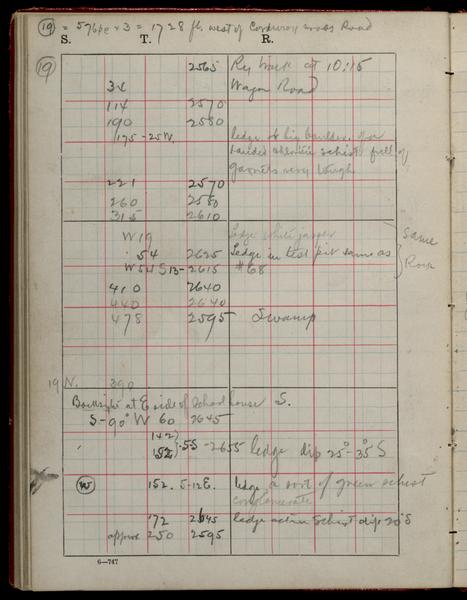 (19) = 576 pc x 3 = 1728 ft. west of Corduroy Road
S. T. R.
(19)
2565 Ry track at 10:15
34 Wagon Road
114 2570
190 2580
175 - 25 W. ledge or big boulder
banded schist full of
garnets very tough
221 2570
260 2580
315 2610
W 19 ledge white jasper
54 2625 Ledge in test pit same as
W 54 S 13 - 2615 #68
Same
Rock
410 2640
440 2640
478 2595 Swamp
19 N. 390
Backsight at E side of School house S.
S-90° W 60 2645
142
152 .55 - 2655 ledge dip 25°-35° S
(W) 152. 5-12 E. ledge a sort of green schist
conglomerate
172 2645 ledge schist dip 20° S
approx 250 2595
6—747